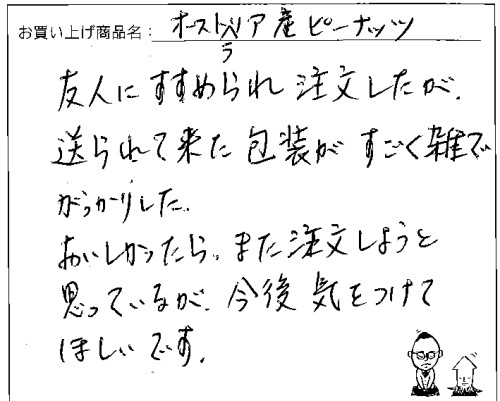 お買い上げ商品名: オーストラリア産ピーナッツ
友人にすすめられ注文したが、
送られて来た包装がすごく雑で
がっかりした。
おいしかったら、また注文しようと
思っているが、今後気をつけて
ほしいです。